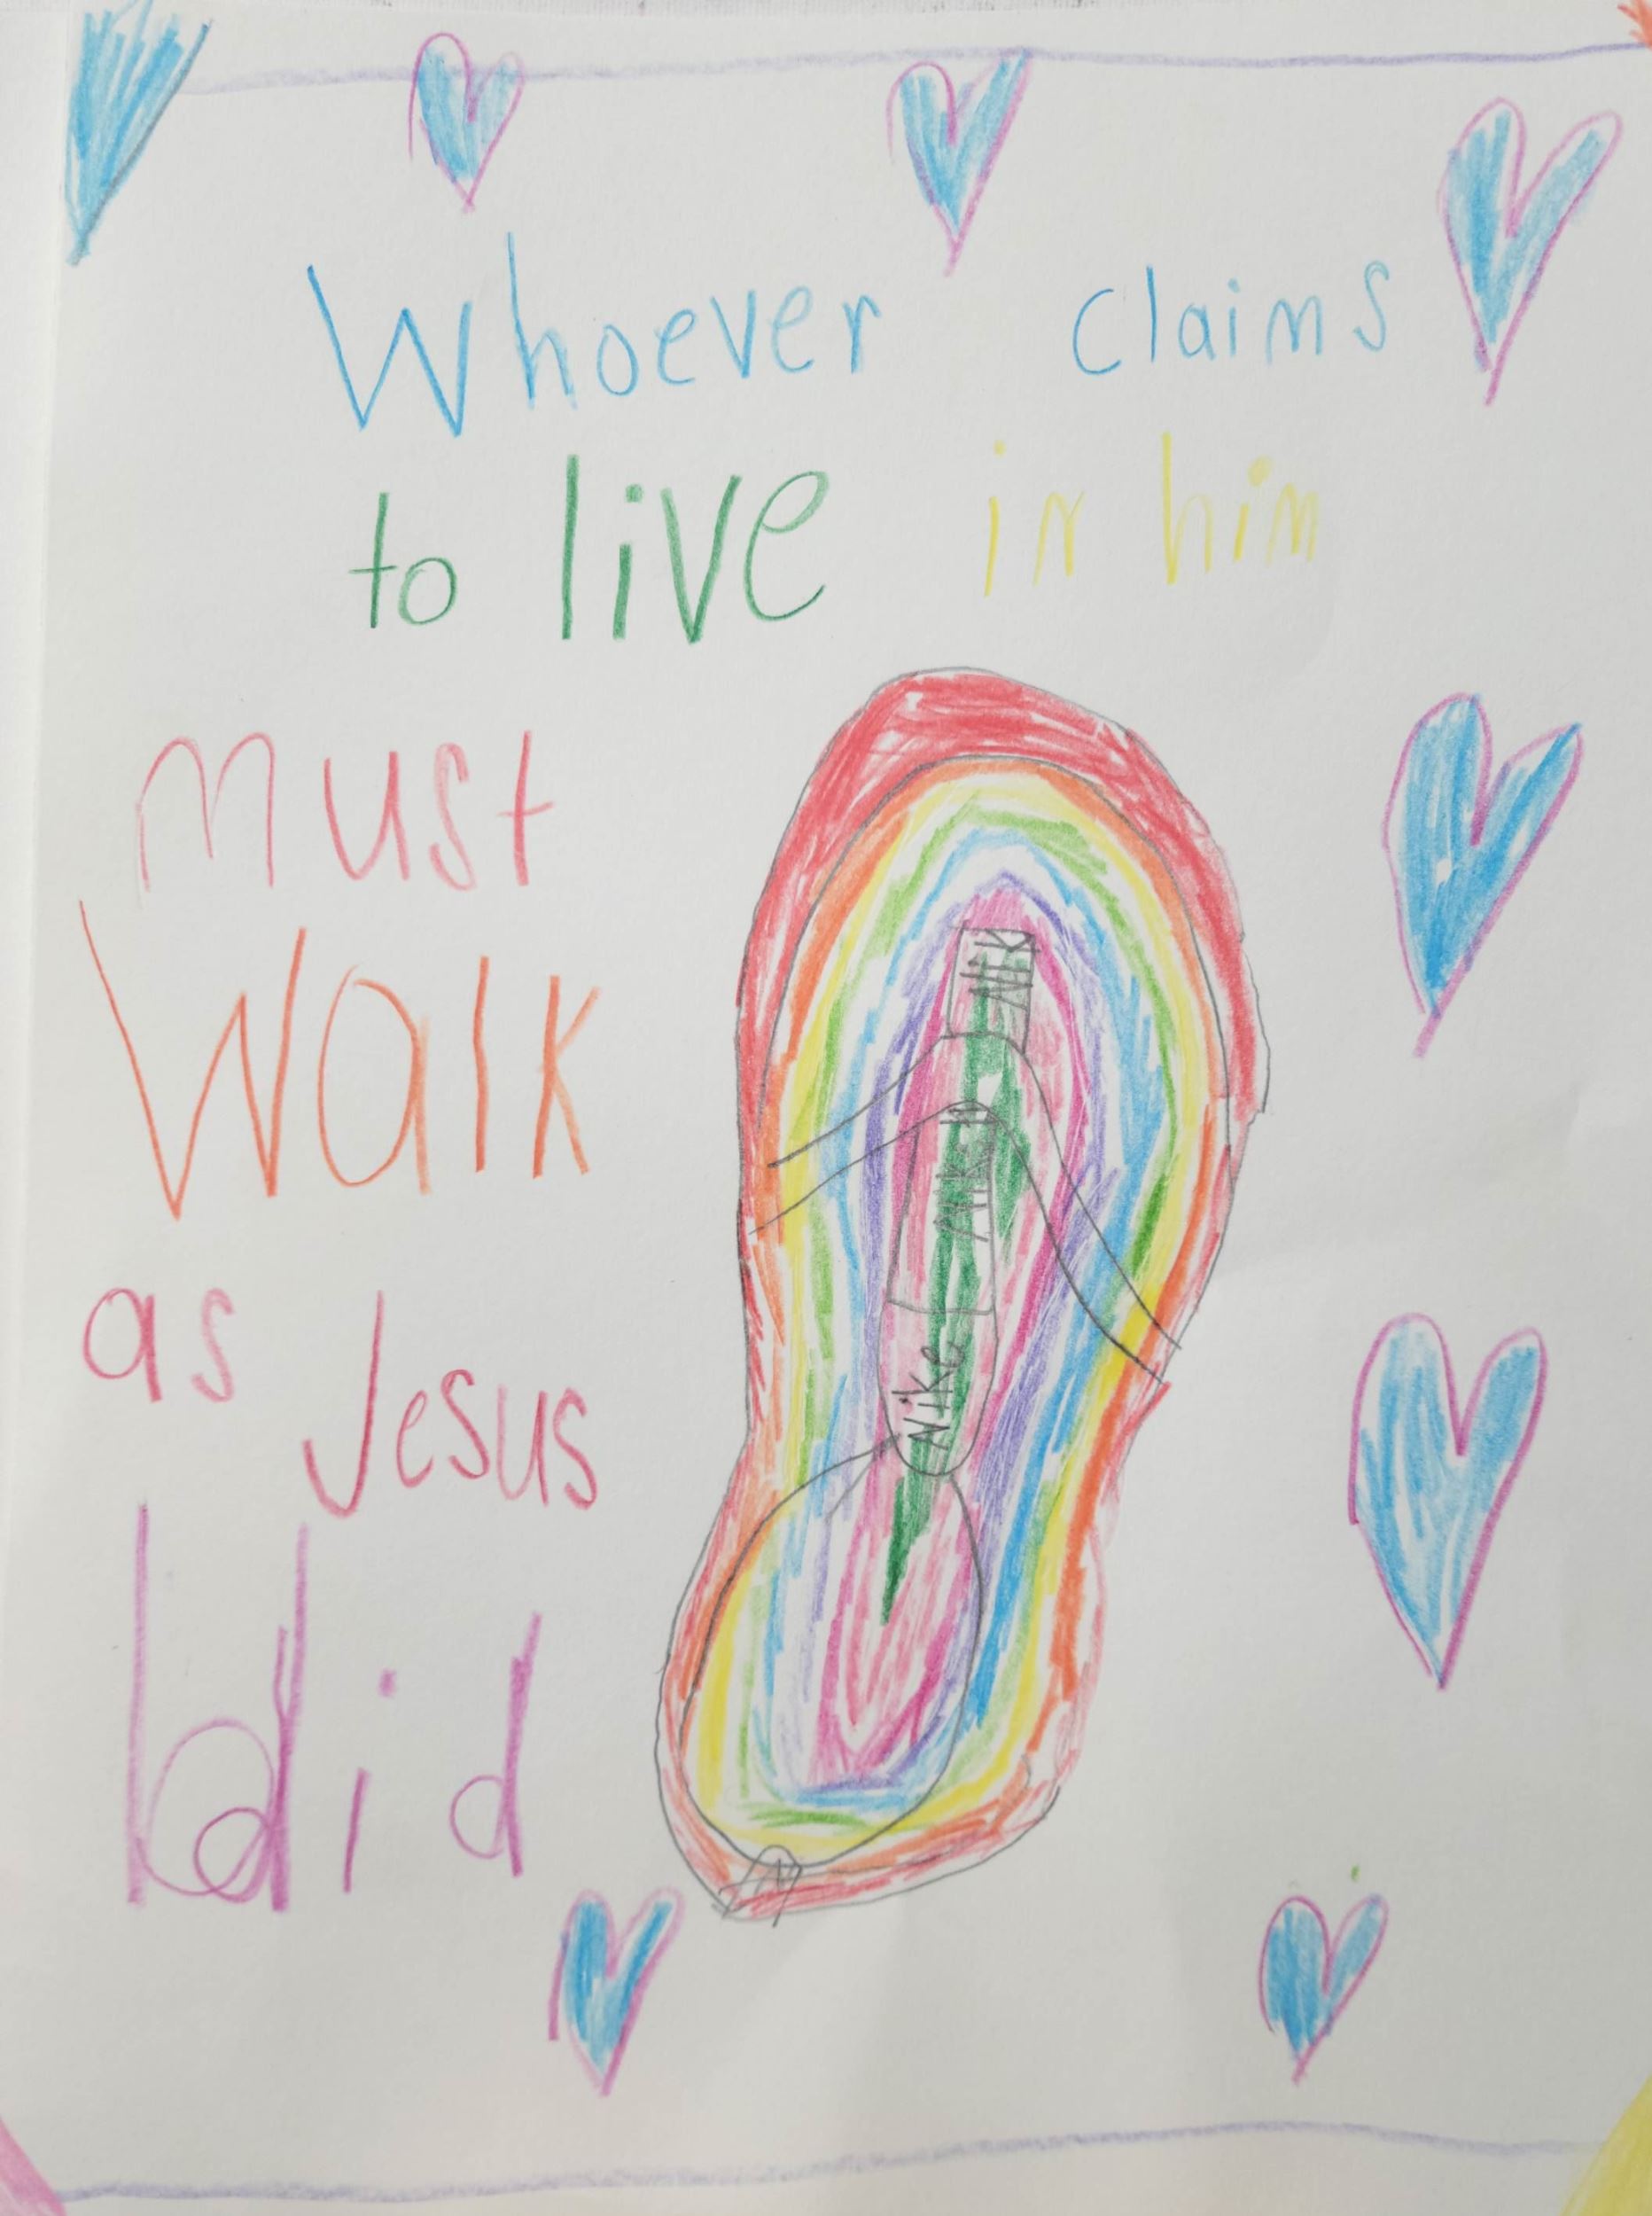 Whoever claims
to live in him
must
Walk
as Jesus
did
Nik
Nike
Nike